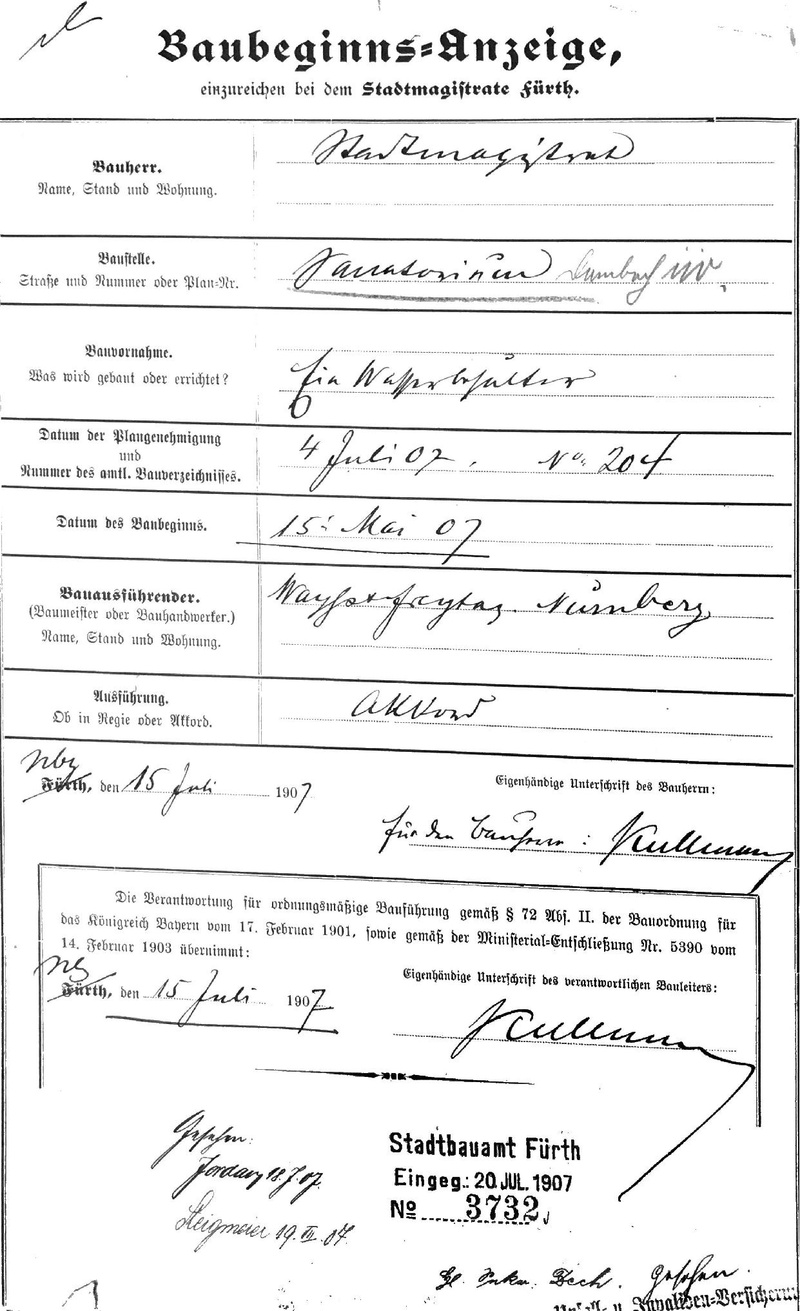 Baubeginns-Anzeige,
einzureichen bei dem Stadtmagistrate Fürth.
Bauherr.
Name, Stand und Wohnung.
Stadtmagistrat
Baustelle.
Straße und Nummer oder Plan-Nr.
Sanatorium Dambach
Bauvornahme.
Was wird gebaut oder errichtet?
Ein Wasserbehälter
Datum der Plangenehmigung
und
Nummer des amtl. Bauverzeichnisses.
4 Juli 07. No. 204
Datum des Baubeginns.
15. Mai 07
Bauausführender.
(Baumeister oder Bauhandwerker.)
Name, Stand und Wohnung.
Wayss & Freytag. Nürnberg
Ausführung.
Ob in Regie oder Akkord.
Akkord
Nbg
Fürth, den 15 Juli 1907
Eigenhändige Unterschrift des Bauherrn:
für den Bauherrn: Kullmann
Die Verantwortung für ordnungsmäßige Bauführung gemäß § 72 Abs. II. der Bauordnung für
das Königreich Bayern vom 17. Februar 1901, sowie gemäß der Ministerial-Entschließung Nr. 5390 vom
14. Februar 1903 übernimmt:
Nbg
Fürth, den 15 Juli 1907
Eigenhändige Unterschrift des verantwortlichen Bauleiters:
Kullmann
Gesehen:
Jordan 18.7.07.
19. VII. 07.
Stadtbauamt Fürth
Eingeg.: 20. JUL. 1907
No 3732
Gesehen.
Invaliden-Versicherung